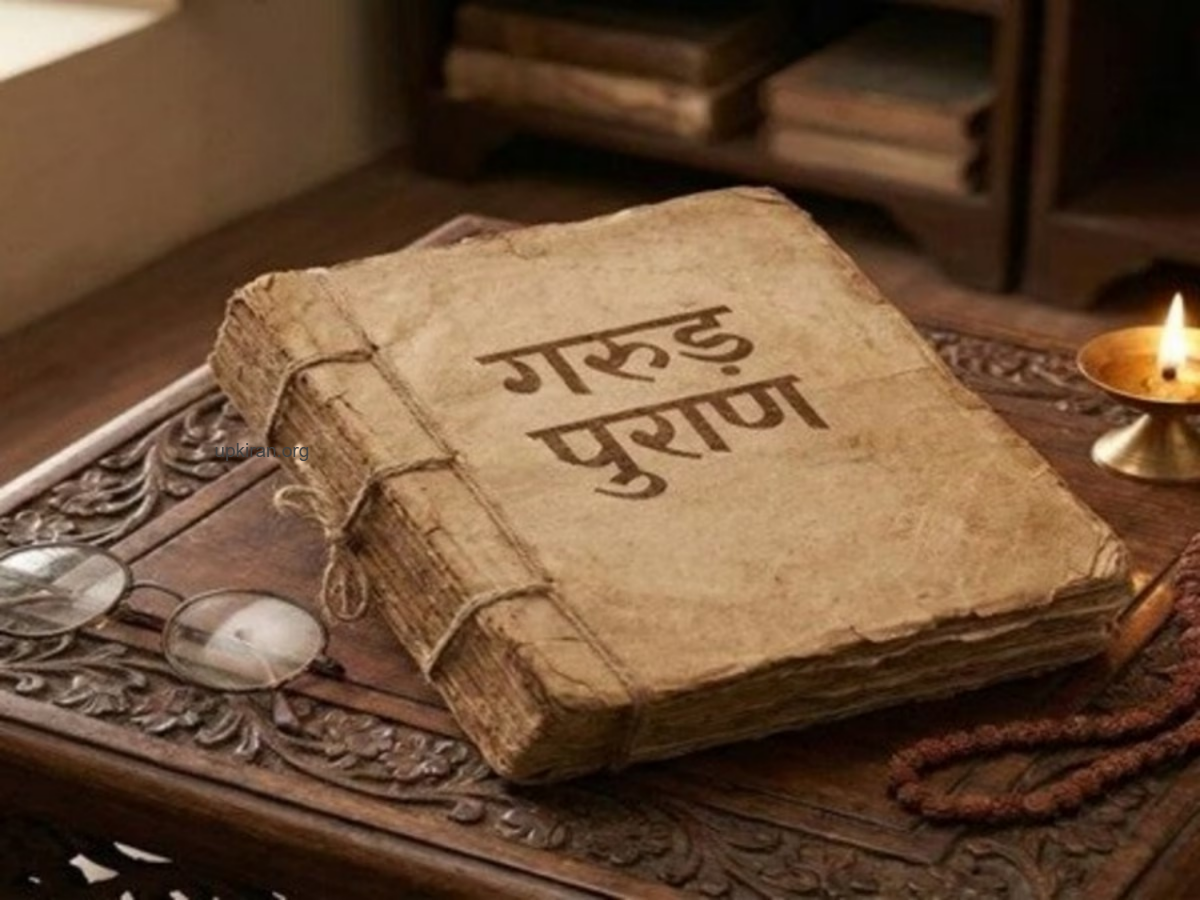 गरुड़
पुराण
upkiran.org